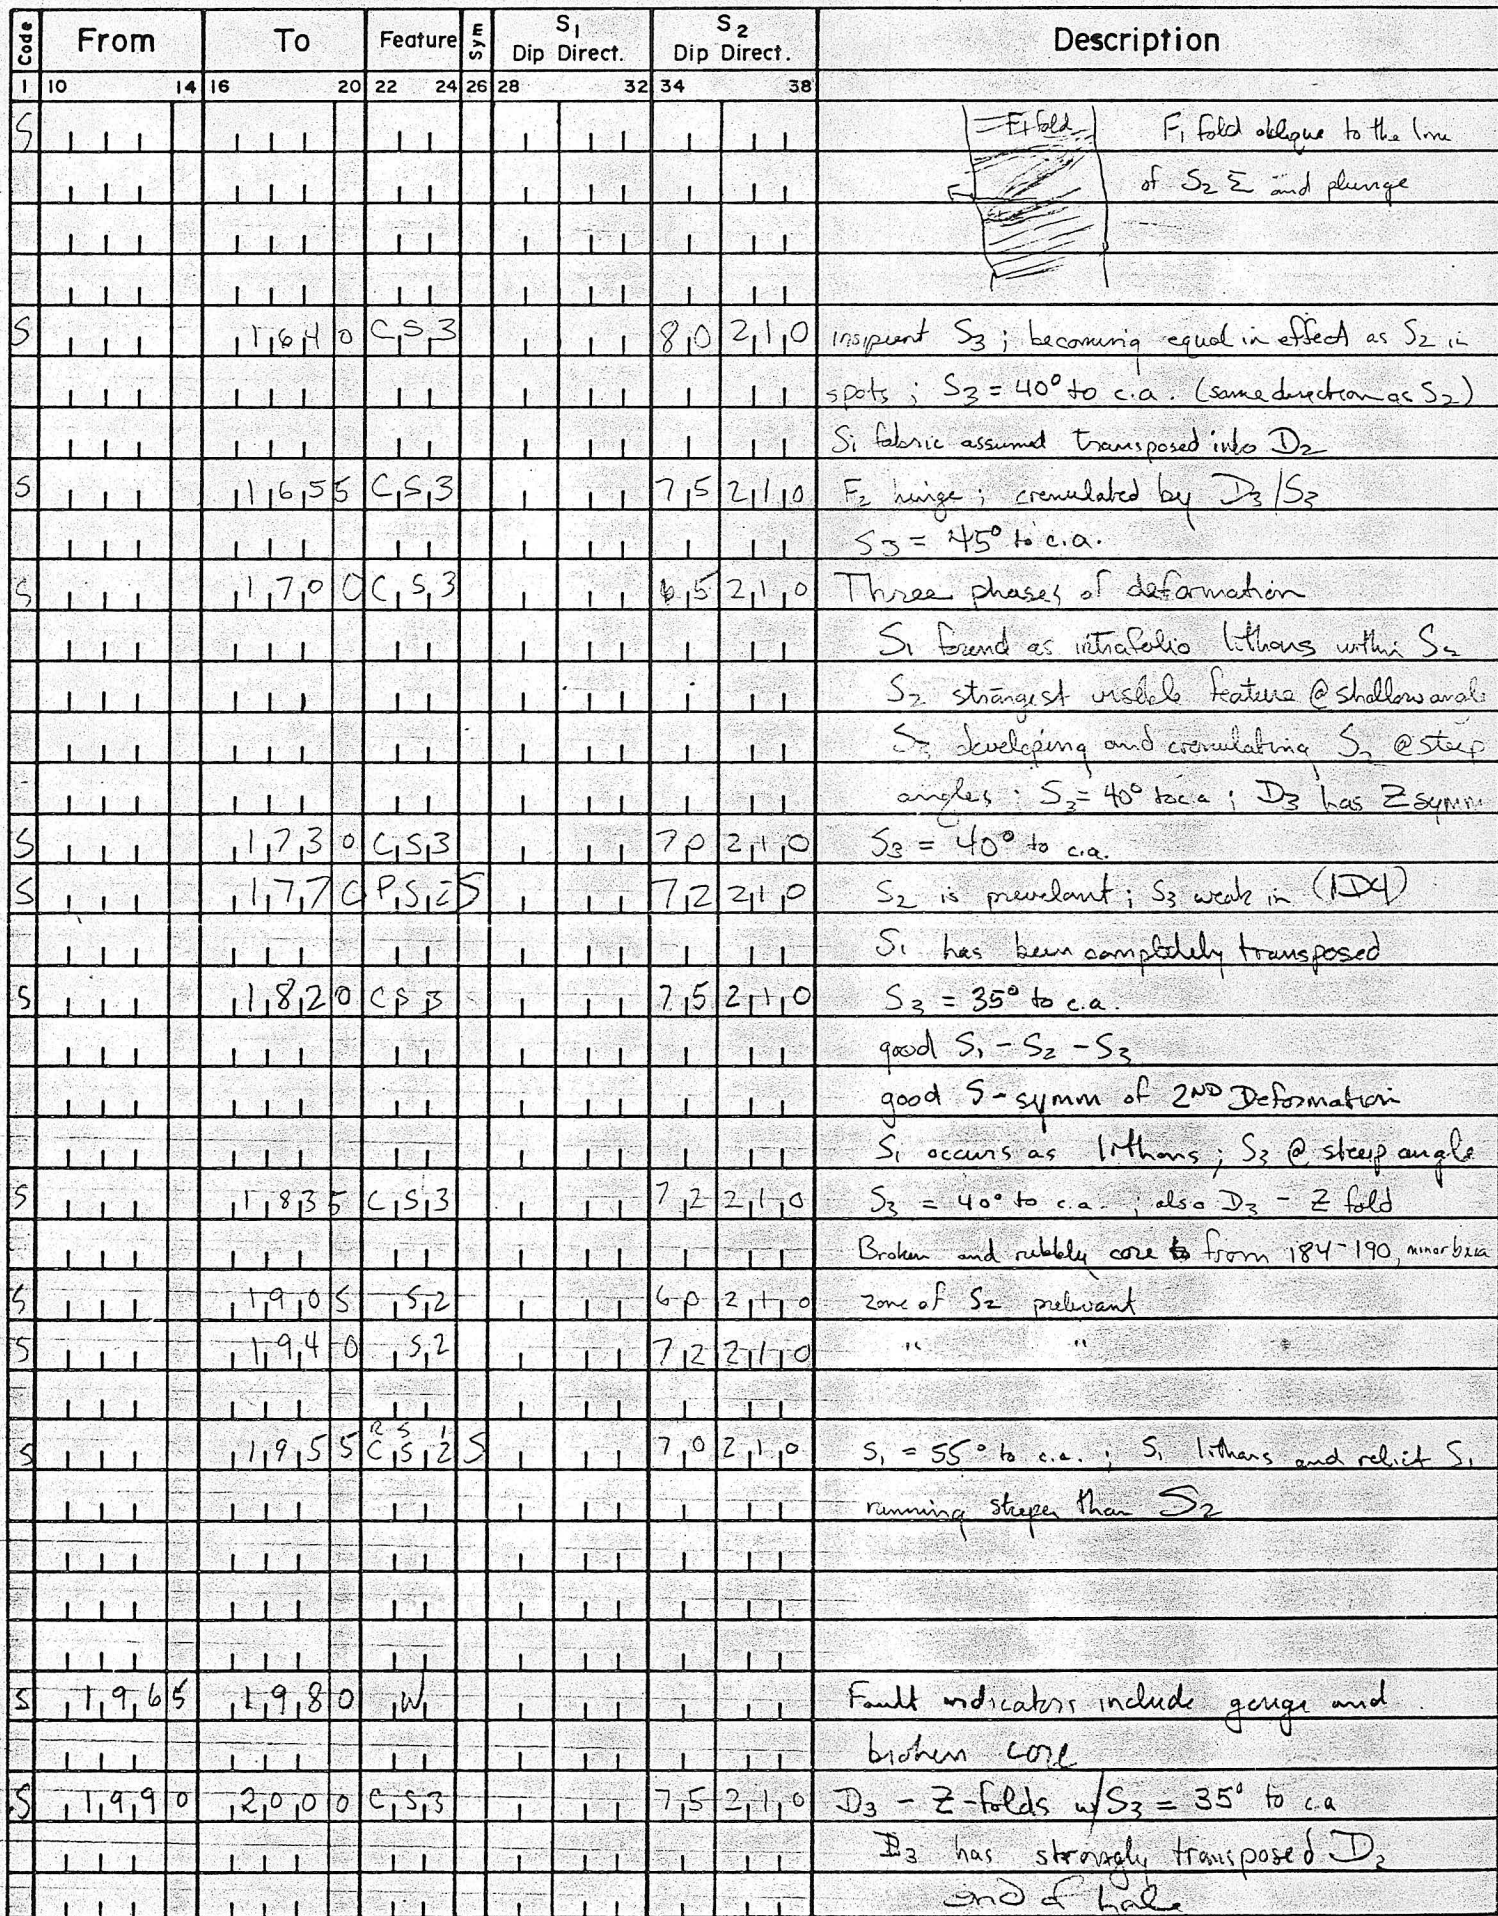 Code From To Feature Sym S1 Dip Direct. S2 Dip Direct. Description
1 10 14 16 20 22 24 26 28 32 34 38
S F1 fold F1 fold oblique to the line
of S2 Σ and plunge
S 1640 CS3 80 210 insipient S3 ; becoming equal in effect as S2 in
spots ; S3 = 40° to c.a. (same direction as S2)
S1 fabric assumed transposed into D2
S 1655 CS3 75 210 F2 hinge ; crenulated by D3/S3
S3 = 45° to c.a.
S 1700 CS3 65 210 Three phases of deformation
S1 found as intrafolio lithons within S2
S2 strongest visible feature @ shallow angle
S3 developing and crenulating S2 @ steep
angles ; S3 = 40° to c.a ; D3 has Z symm
S 1730 CS3 70 210 S3 = 40° to c.a.
S 1770 PS2 S 72 210 S2 is prevelant ; S3 weak in (1D4)
S1 has been completely transposed
S 1820 CS3 75 210 S3 = 35° to c.a.
good S1 - S2 - S3
good S - symm of 2ND Deformation
S1 occurs as lithons ; S3 @ steep angle
S 1835 CS3 72 210 S3 = 40° to c.a. ; also D3 - Z fold
Broken and rubbly core from 184-190, minor bxia
S 1905 S2 60 210 zone of S2 prelevant
S 1940 S2 72 210 " "
RS1
S 1955 CS2 S 70 210 S1 = 55° to c.a. ; S1 lithons and relict S1
running steeper than S2
S 1965 1980 W Fault indicators include gouge and
broken core
S 1990 2000 CS3 75 210 D3 - Z-folds w/ S3 = 35° to c.a
D3 has strongly transposed D2
end of hole